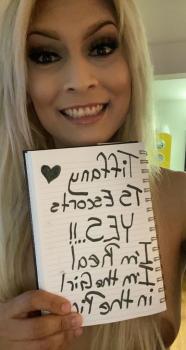 Tiffany
TS Escorts
YES...!!
I'm Real
I'm the Girl
in the Pic